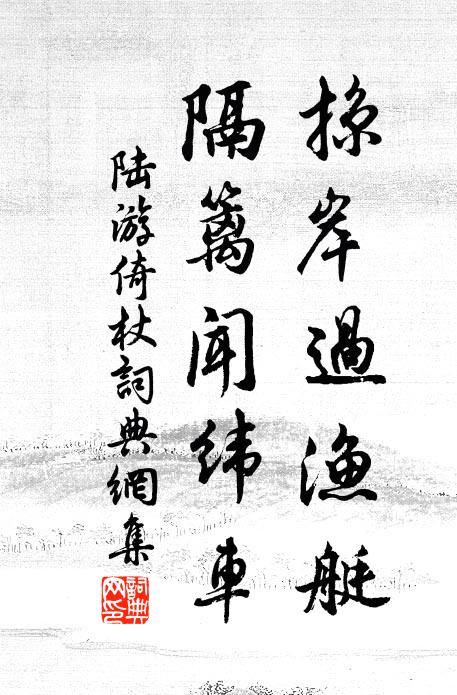 掠岸過漁艇
隔籬聞緯車
陸游倚杖詞典網集
詞典